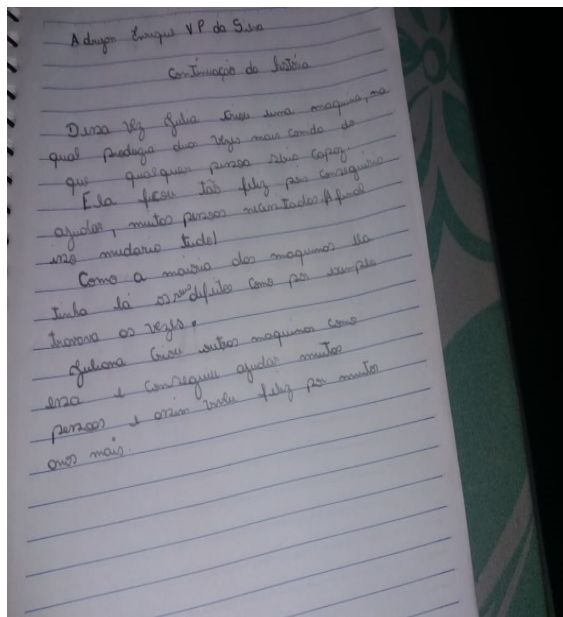 Adryan Enrique V P da Silva
Continuação da história
Dessa vez Julia criou uma maquina, na
qual produzia duas vezes mais comida do
que qualquer pessoa seria capaz.
Ela ficou tão feliz pois conseguiria
ajudar, muitas pessoas necessitadas. Afinal
isso mudaria tudo!
Como a maioria das maquinas ela
tinha lá os seus defeitos como por exemplo
travava as vezes.
Juliana criou outras maquinas como
essa e conseguiu ajudar muitas
pessoas e assim viveu feliz por muitos
anos mais.